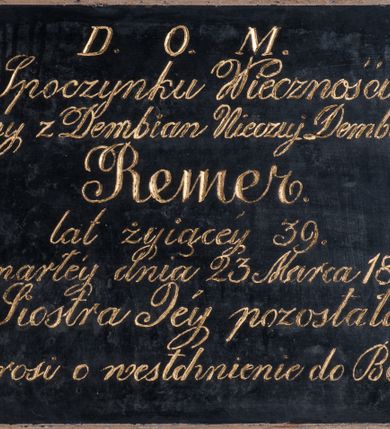 D. O. M.
Spoczynku Wiecznośći
ny z Dembian Nieczuj Demb
Remer.
lat żyiącey 39.
marłéy dnia 23 Marca 18
Siostra Jéy pozostała
rosi o westchnienie do Bo